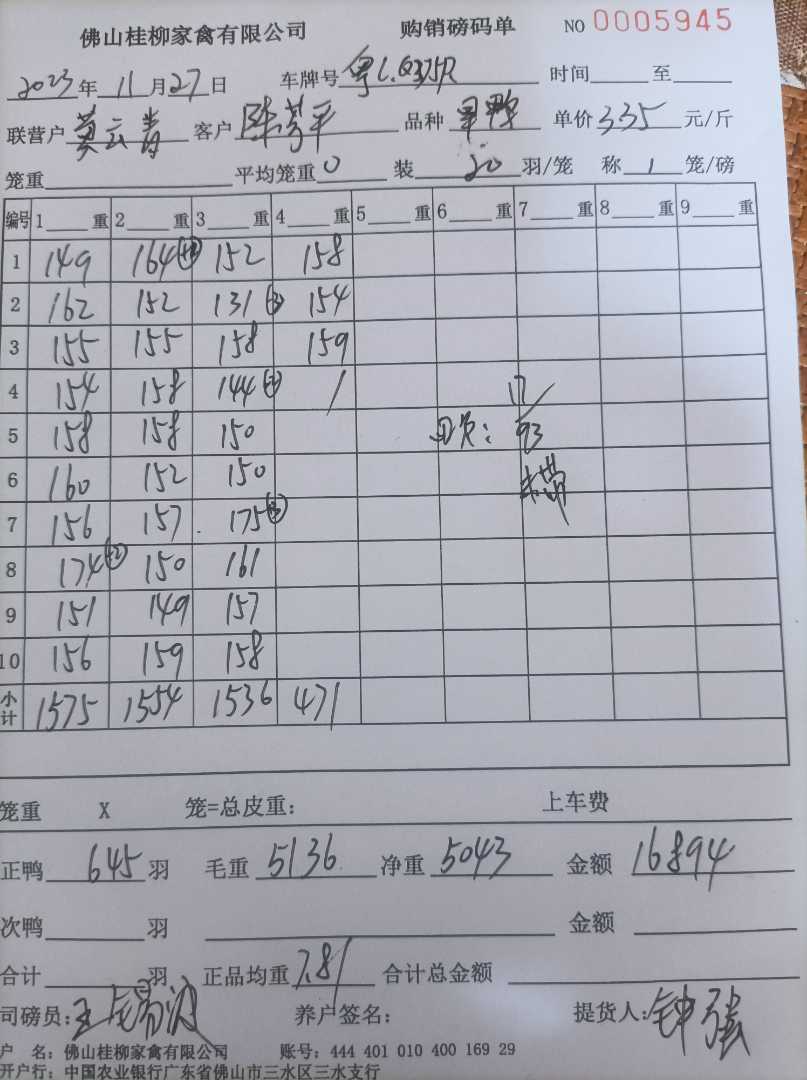 佛山桂柳家禽有限公司 购销磅码单 NO 0005945
2023年11月27日 车牌号粤L 时间 至
联营户黄云青 客户陈芳平 品种 单价3.35元/斤
笼重 平均笼重0 装20羽/笼 称1笼/磅
编号 1 重 2 重 3 重 4 重 5 重 6 重 7 重 8 重 9 重
1 149 164(+2) 152 158
2 162 152 131 154
3 155 155 158 159
4 154 158 144 / 17
5 158 158 150 93
6 160 152 150
7 156 157 175(+3)
8 174(+2) 150 161
9 151 149 157
10 156 159 158
小计 1575 1554 1536 471
笼重 X 笼=总皮重: 上车费
正鸭645羽 毛重5136 净重5043 金额16894
次鸭 羽 金额
合计 羽 正品均重7.81 合计总金额
司磅员: 养户签名: 提货人:钟强
户 名:佛山桂柳家禽有限公司 账号:444 401 010 400 169 29
开户行:中国农业银行广东省佛山市三水区三水支行